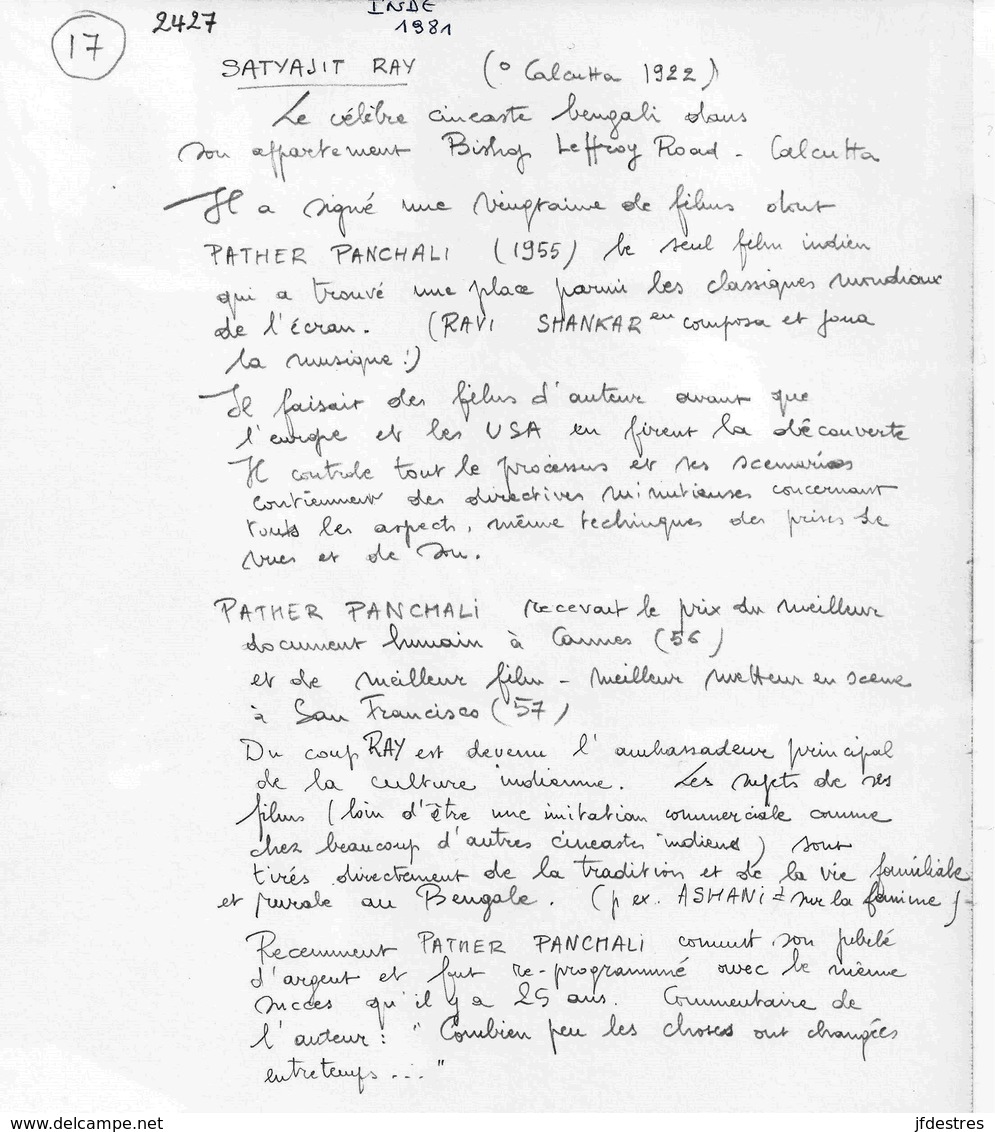 INDE
17 2427 1981
SATYAJIT RAY (° Calcutta 1922)
Le célèbre cineaste bengali dans
son appartement Bishop Leffroy Road - Calcutta
Il a signé une vingtaine de films dont
PATHER PANCHALI (1955) le seul film indien
qui a trouvé une place parmi les classiques mondiaux
de l'écran. (RAVI SHANKAR en composa et joua
la musique !)
Il faisait des films d'auteur avant que
l'europe et les USA en firent la découverte
Il controle tout le processus et ses scenarios
contiennent des directives minutieuses concernant
touts les aspects, même techniques des prises de
vues et de son.
PATHER PANCHALI recevait le prix du meilleur
document humain à Cannes (56)
et de meilleur film - meilleur metteur en scene
à San Francisco ('57)
Du coup RAY est devenu l'ambassadeur principal
de la culture indienne. Les sujets de ses
films (loin d'être une imitation commerciale comme
chez beaucoup d'autres cineastes indiens) sont
tirés directement de la tradition et de la vie familiale
et rurale au Bengale. (p ex. ASHANI ± sur la famine) -
Recemment PATHER PANCHALI connut son jubelé
d'argent et fut re-programmé avec le même
succes qu'il y a 25 ans. Commentaire de
l'auteur : " Combien peu les choses ont changées
entretemps ... "
www.delcampe.net
jfdestres